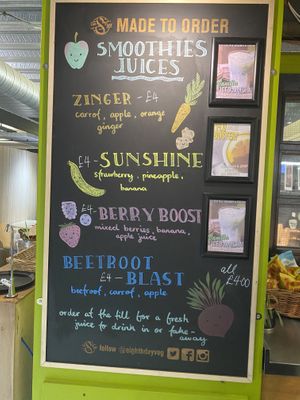 MADE TO ORDER
SMOOTHIES
JUICES
ZINGER - £4
carrot, apple, orange
ginger
£4 - SUNSHINE
strawberry, pineapple,
banana
£4- BERRY BOOST
mixed berries, banana,
apple juice
BEETROOT
£4 - BLAST
beetroot, carrot, apple
all
£4.00
order at the till for a fresh
juice to drink in or take-
away
follow @eighthdayveg